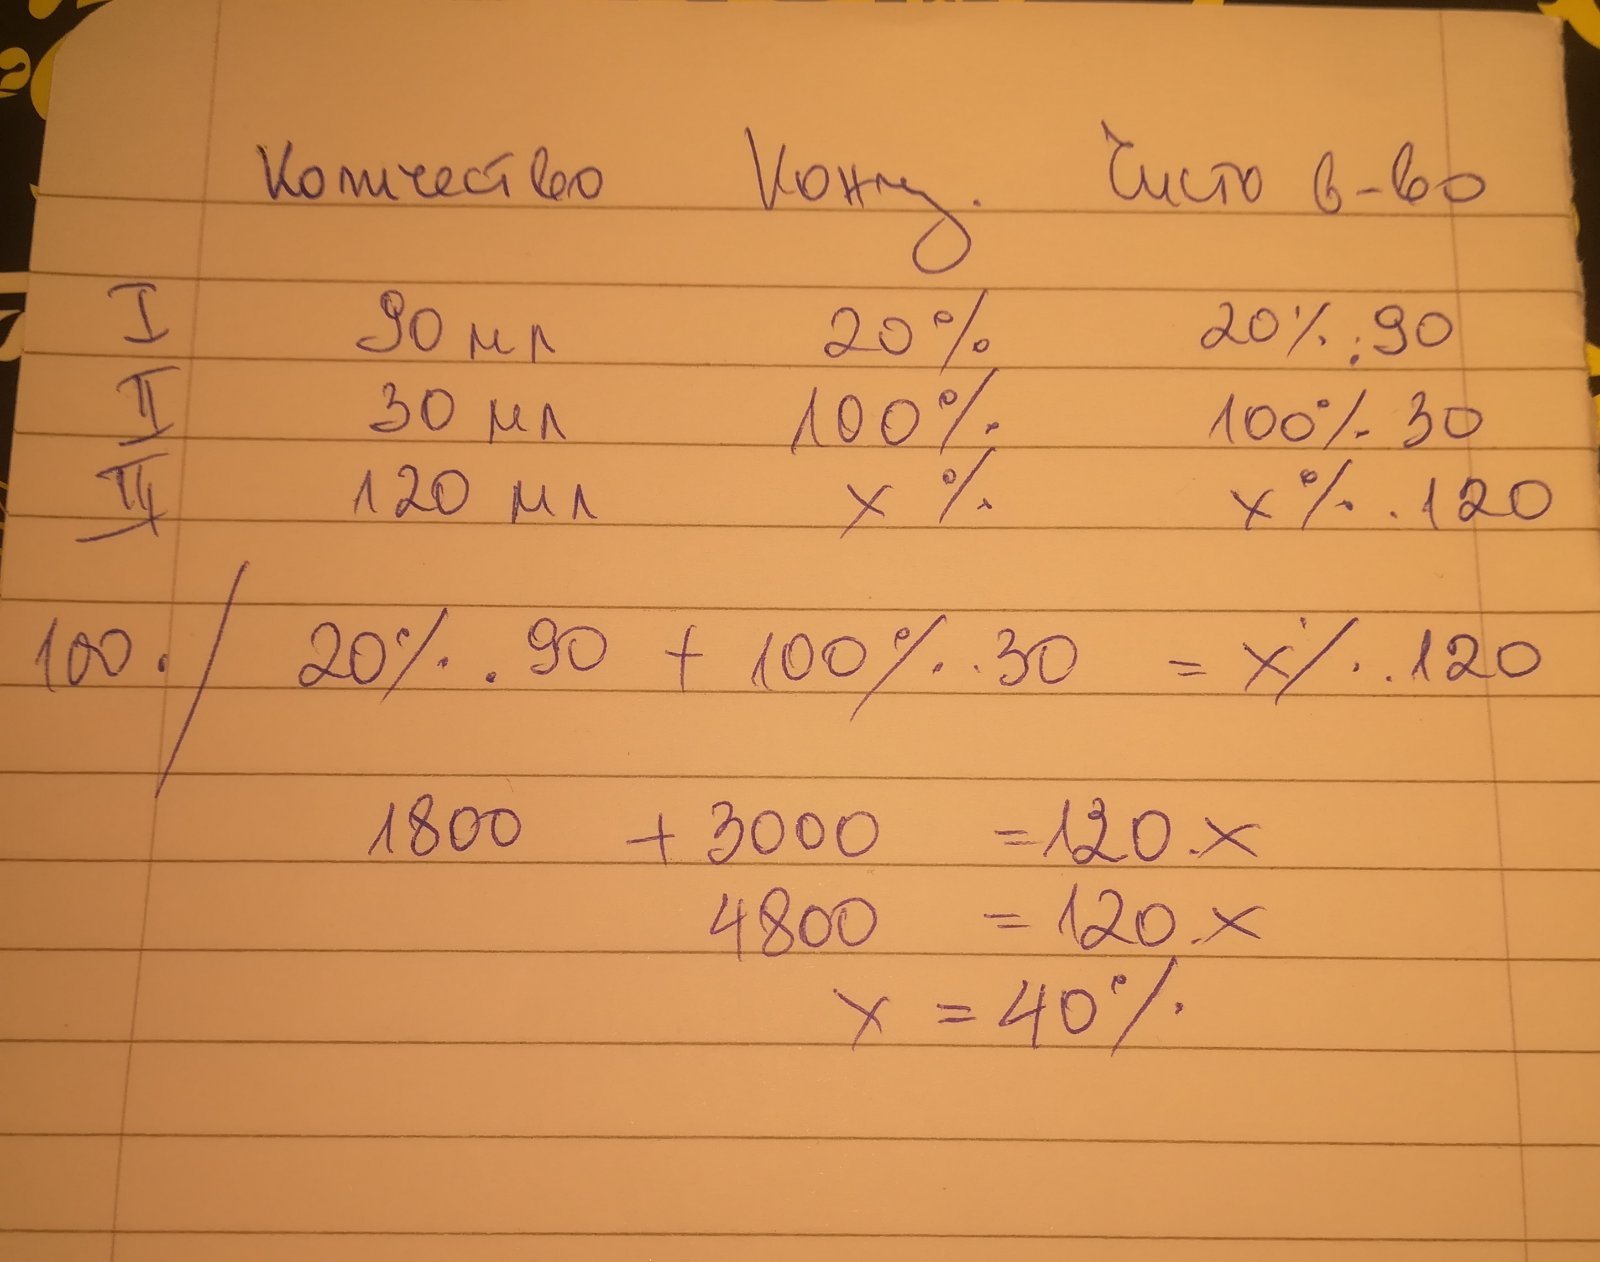 Количество Конц. Чисто в-во
I 90 мл 20% 20%.90
II 30 мл 100% 100%.30
III 120 мл x% x%.120
100./ 20%.90 + 100%.30 = x%.120
1800 + 3000 = 120.x
4800 = 120.x
x = 40%